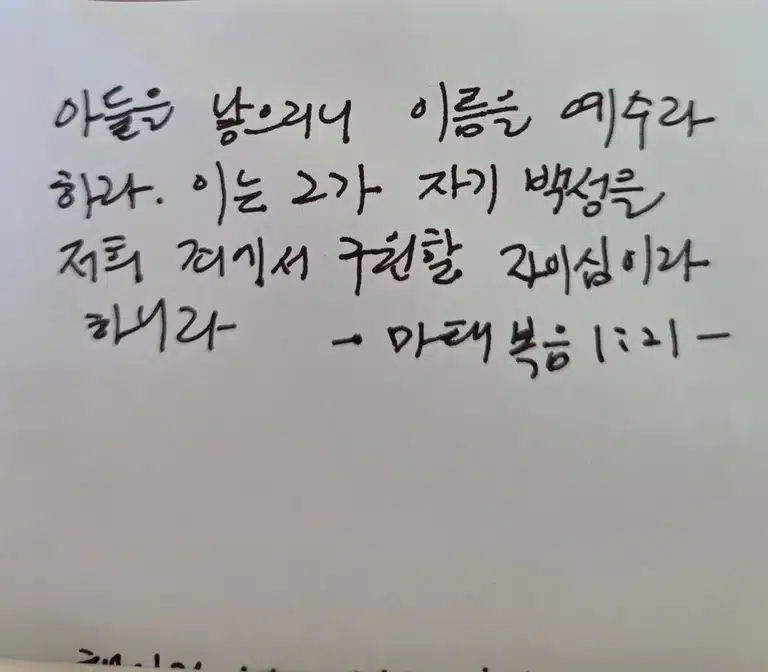 아들을 낳으리니 이름을 예수라
하라. 이는 그가 자기 백성을
저희 죄에서 구원할 자이심이라
하니라 - 마태복음 1:21 -